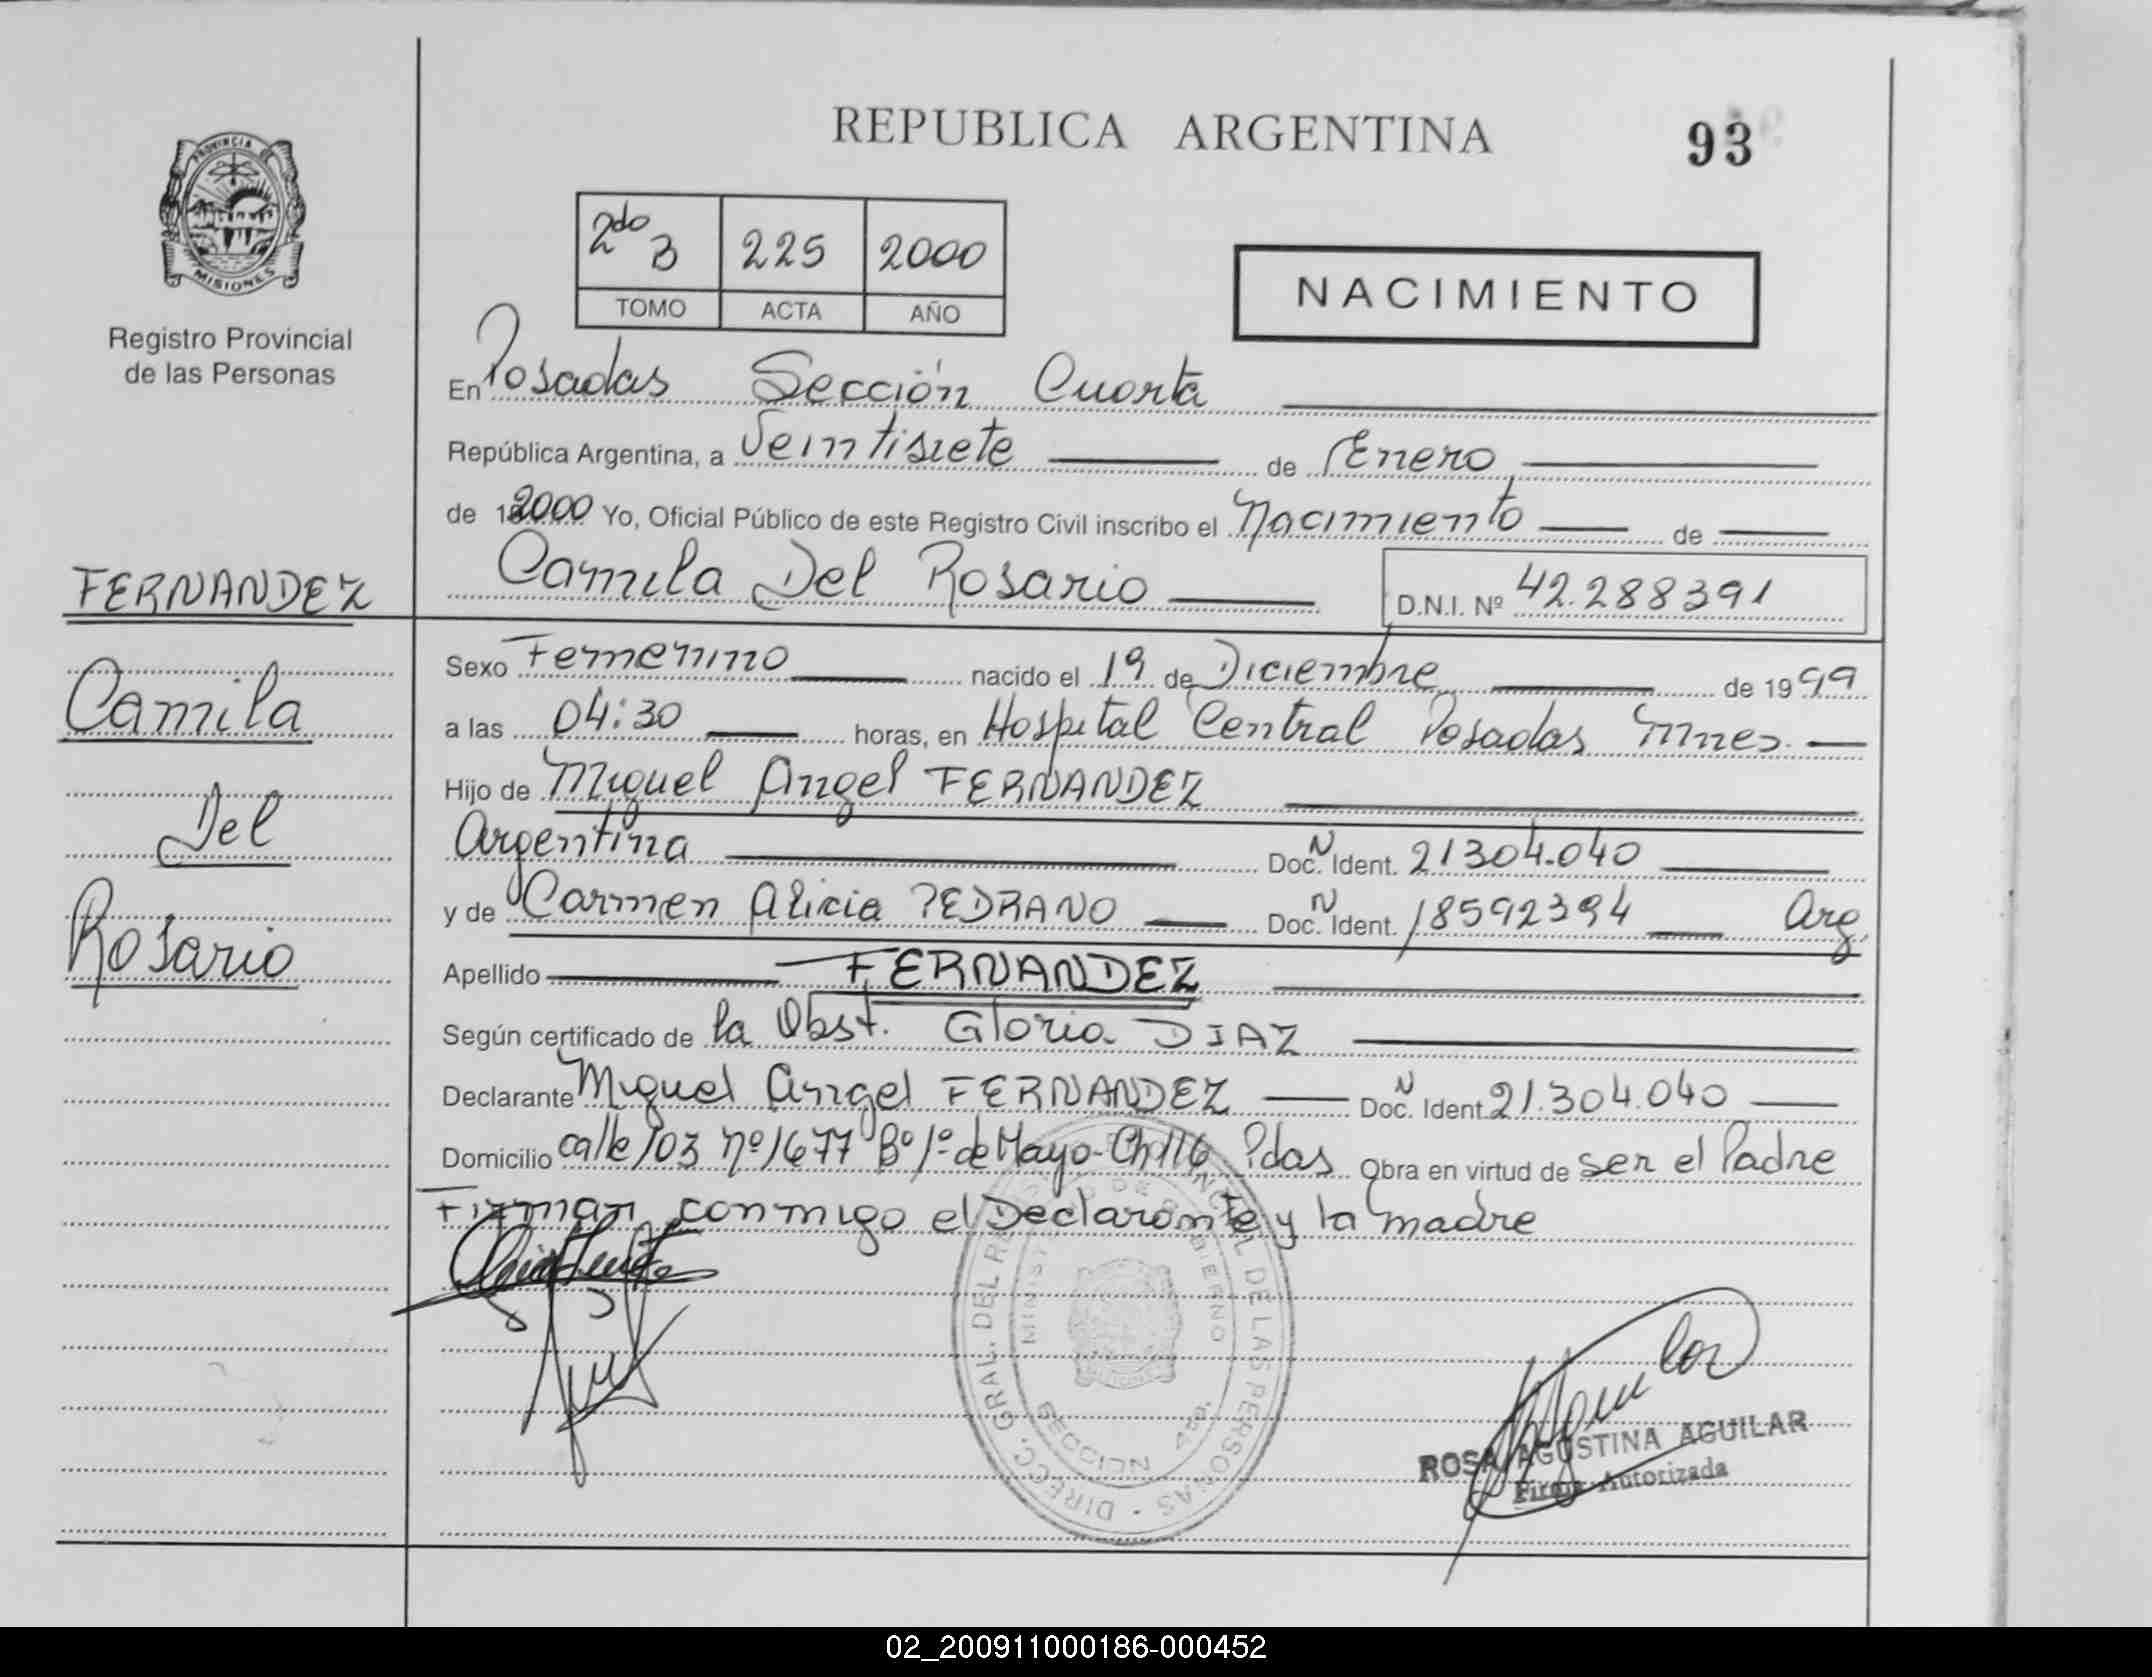 REPUBLICA ARGENTINA
93
PROVINCIA DE
MISIONES
Registro Provincial
de las Personas
2do B 225 2000
TOMO ACTA AÑO
NACIMIENTO
En Posadas Sección Cuarta
República Argentina, a Veintisiete de Enero
de 2000 Yo, Oficial Público de este Registro Civil inscribo el Nacimiento de
Camila Del Rosario D.N.I. Nº 42.288391
FERNANDEZ
Camila
Del
Rosario
Sexo Femenino nacido el 19 de Diciembre de 1999
a las 04:30 horas, en Hospital Central Posadas Mnes.
Hijo de Miguel Angel FERNANDEZ
Argentina Doc. N Ident. 21304.040
y de Carmen Alicia PEDRANO Doc. N Ident. 18592394 Arg.
Apellido FERNANDEZ
Según certificado de la Obst. Gloria DIAZ
Declarante Miguel Angel FERNANDEZ Doc. N Ident. 21.304.040
Domicilio calle 103 nº 1677 Bº 1º de Mayo- Ch 116 Pdas Obra en virtud de ser el Padre
Firman conmigo el Declarante y la madre
DIRECC. GRAL. DEL PROVINCIAL DE LAS PERSONAS
MINISTERIO DE GOBIERNO
SECCION 4ta.
ROSA AGUSTINA AGUILAR
Firma Autorizada
02_200911000186-000452